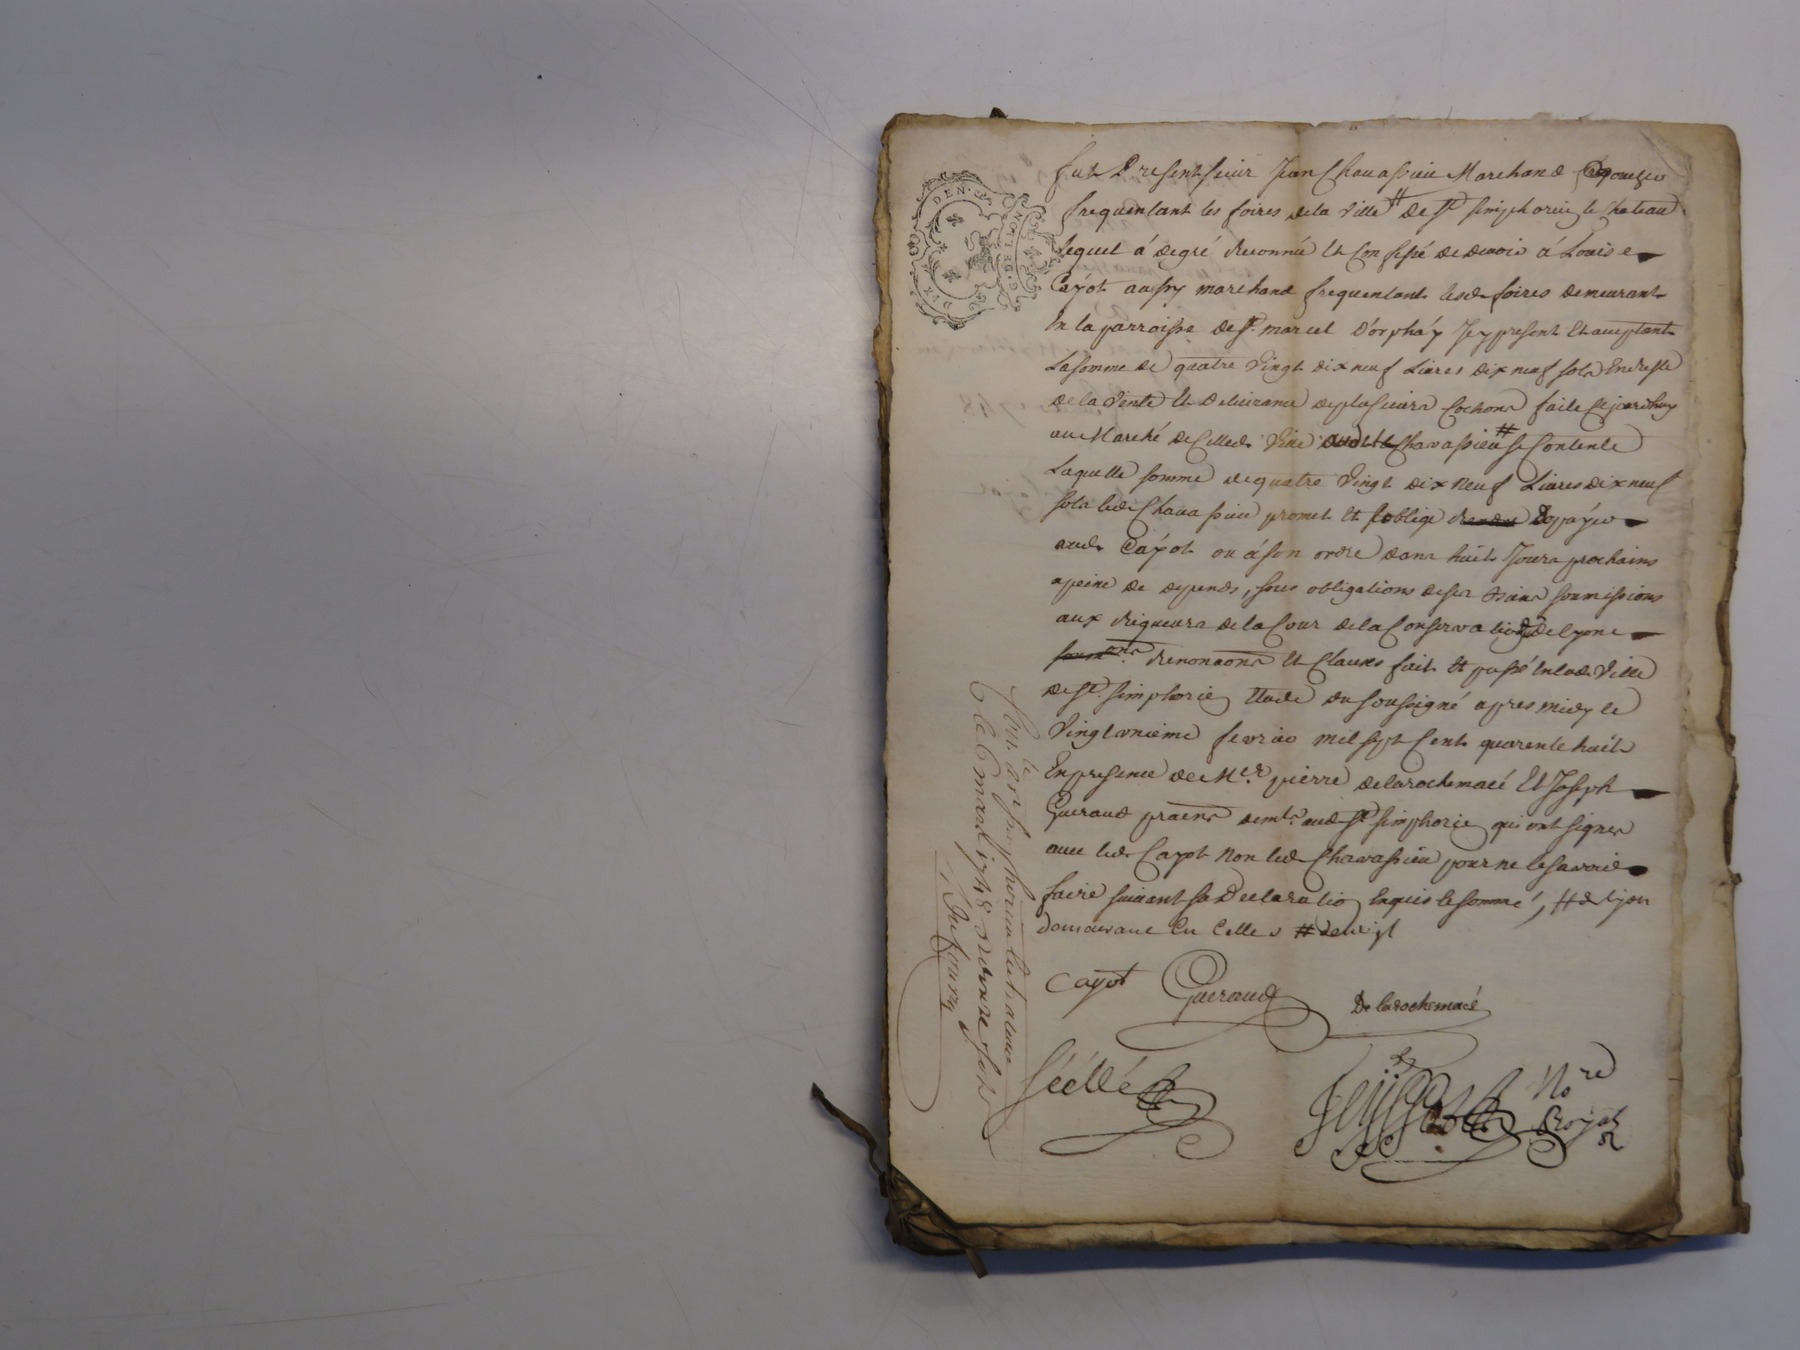 fut Present sieur Jean Chavassieu Marchand
frequentant les foires dela Ville # de st simphorien le Chateau
lequel á degré reconnu et Confessé de devoir á Louis
Cayot aussy marchand frequentant lesd. foires demeurant
En la parroisse de st. marcel D'orpháy Icy present et acceptant
La somme de quatre Vingt dix neuf Livres dix neuf sols En reste
de la Vente et Delivrance de plusieurs Cochons faite Cejourdhuy
au Marché de Cetted. Ville Chavassieu # se Contente
Laquelle somme de quatre Vingt dix neuf Livres dix neuf
sols led. Chavassieu promet et soblige payer
aud. Cayot ou á son ordre dans huit Jours prochains
a peine de depends, sous obligations de ses biens soumissions
aux rigueurs de la Cour de la Conservation de lyon
renonaons et Clauses fait et passé en lad. Ville
de st. simphorien Etude du soussigné apres midy le
Vingt unieme fevrier mil sept Cent quarente huit
En presence de Mer. pierre delarochemacé Et Joseph
Gueraud pratns demts. aud st. simphorien qui ont signer
avec led. Cayot Non led. Chavassieu pour ne le savoir
faire suivant sa Declaration enquis et sommé, # de lyon
demeurant En Celle #
Cayot Gueraud Delarochemacé
Scéllé
Nore
Royal
DIX DEN.
G. DE LYON
le 6 mars 1748 Dufour